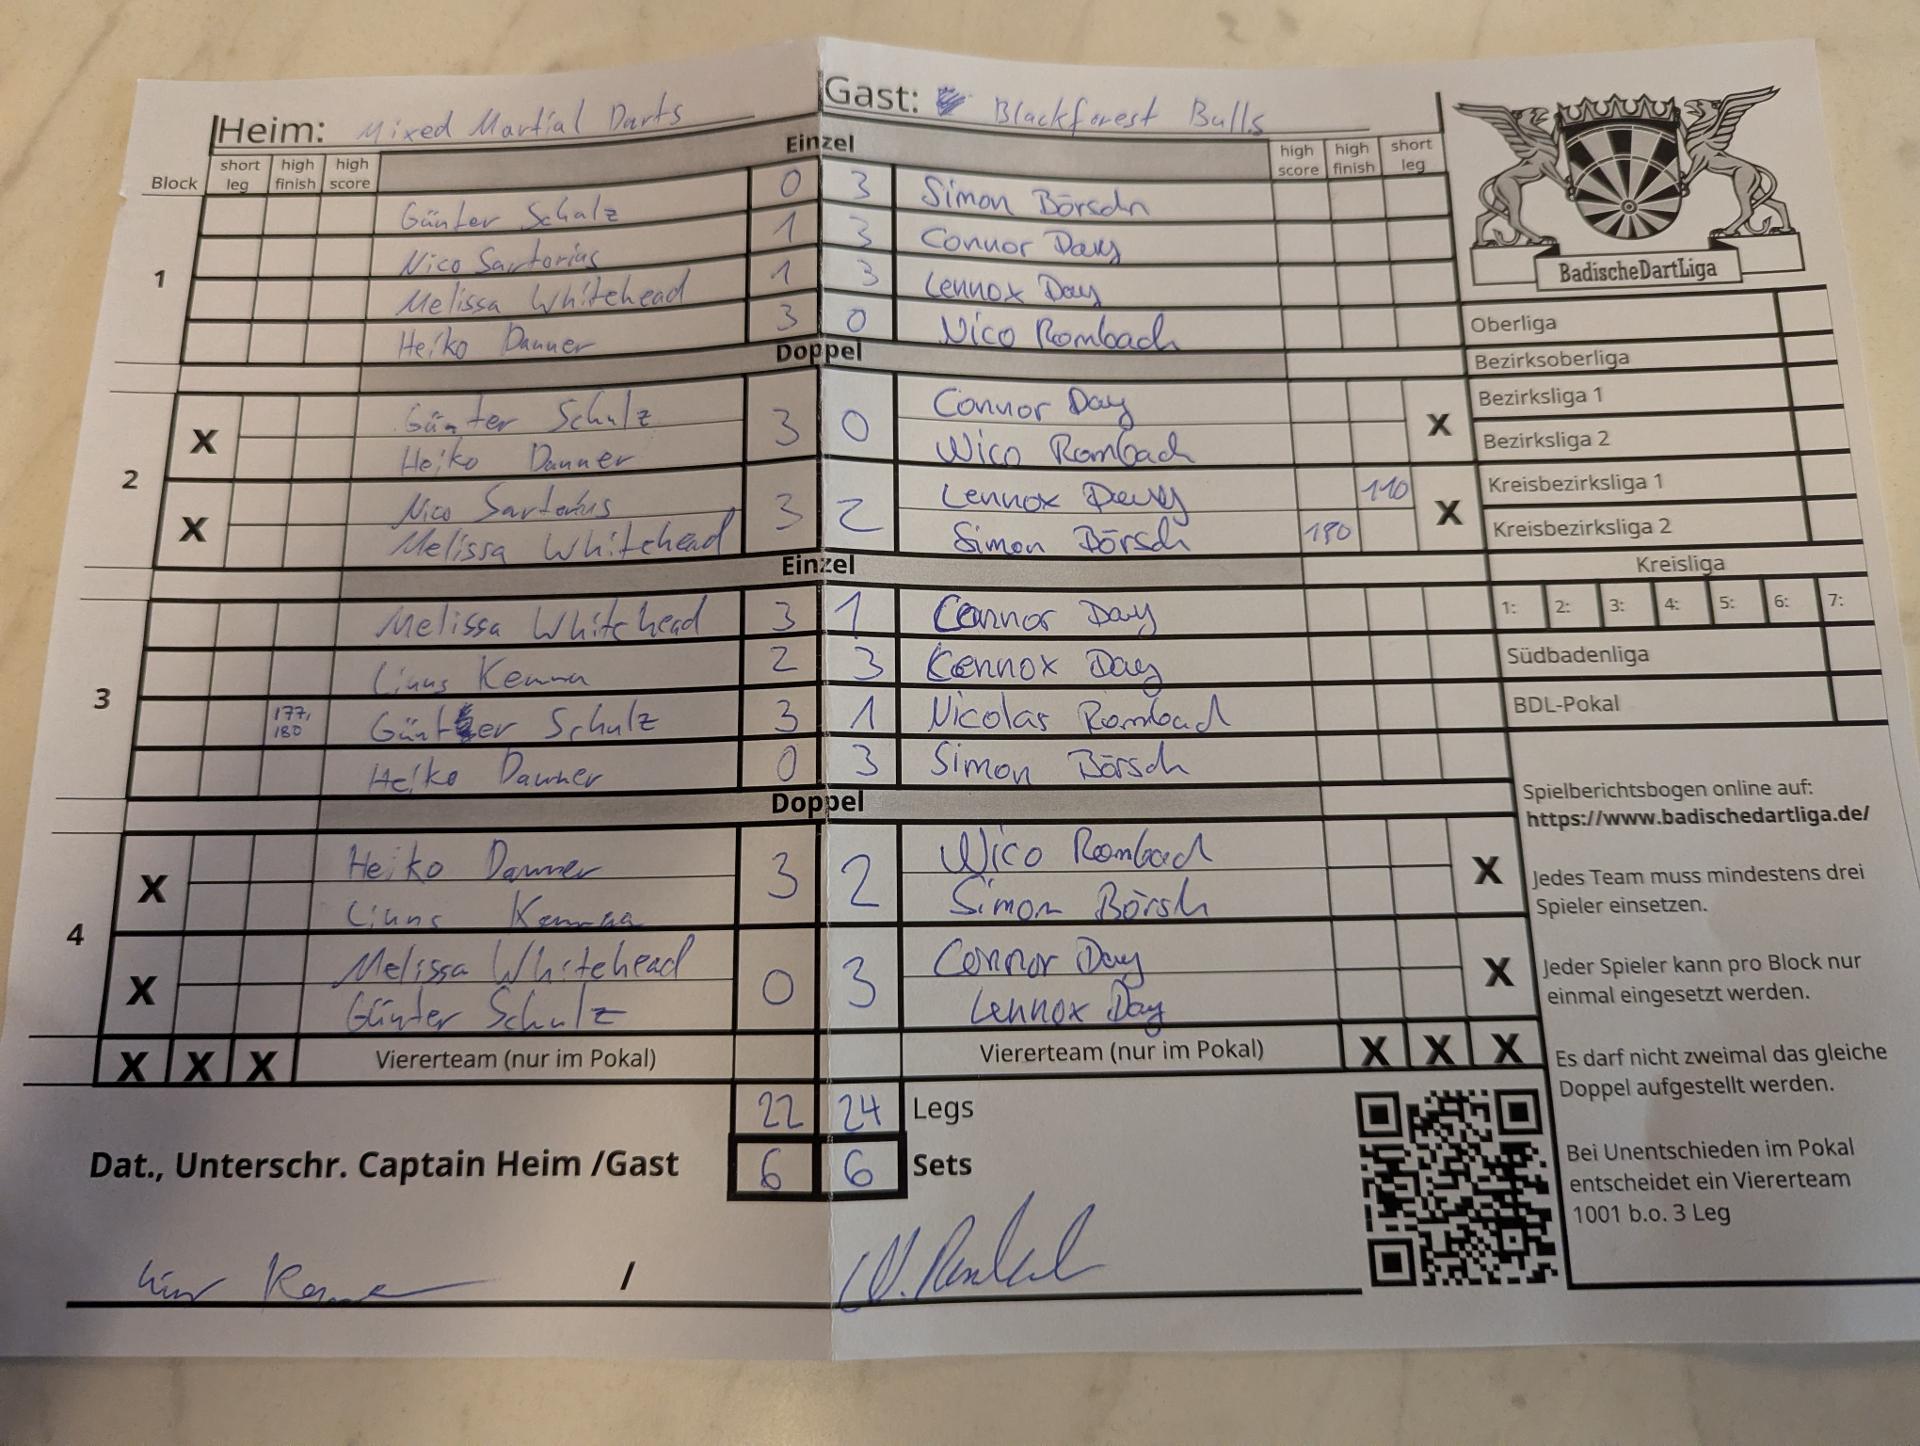 Heim: Mixed Martial Darts Gast: Blackforest Bulls
Einzel
Block short leg high finish high score high score high finish short leg
1
Günter Schulz 0 3 Simon Börsch
Nico Sartorius 1 3 Connor Day
Melissa Whitehead 1 3 Lennox Day
Heiko Danner 3 0 Nico Rombach
Doppel
2
X Günter Schulz 3 0 Connor Day X
Heiko Danner Nico Rombach
X Nico Sartorius 3 2 Lennox Day 110 X
Melissa Whitehead Simon Börsch 180
Einzel
3
Melissa Whitehead 3 1 Connor Day
Linus Kemma 2 3 Lennox Day
177, 180 Günter Schulz 3 1 Nicolas Rombach
Heiko Danner 0 3 Simon Börsch
Doppel
4
X Heiko Danner 3 2 Nico Rombach X
Linus Kemma Simon Börsch
X Melissa Whitehead 0 3 Connor Day X
Günter Schulz Lennox Day
X X X Viererteam (nur im Pokal) Viererteam (nur im Pokal) X X X
22 24 Legs
Dat., Unterschr. Captain Heim /Gast 6 6 Sets
/ N. Rombach
BadischeDartLiga
Oberliga
Bezirksoberliga
Bezirksliga 1
Bezirksliga 2
Kreisbezirksliga 1
Kreisbezirksliga 2
Kreisliga
1: 2: 3: 4: 5: 6: 7:
Südbadenliga
BDL-Pokal
Spielberichtsbogen online auf:
https://www.badischedartliga.de/
Jedes Team muss mindestens drei
Spieler einsetzen.
Jeder Spieler kann pro Block nur
einmal eingesetzt werden.
Es darf nicht zweimal das gleiche
Doppel aufgestellt werden.
Bei Unentschieden im Pokal
entscheidet ein Viererteam
1001 b.o. 3 Leg